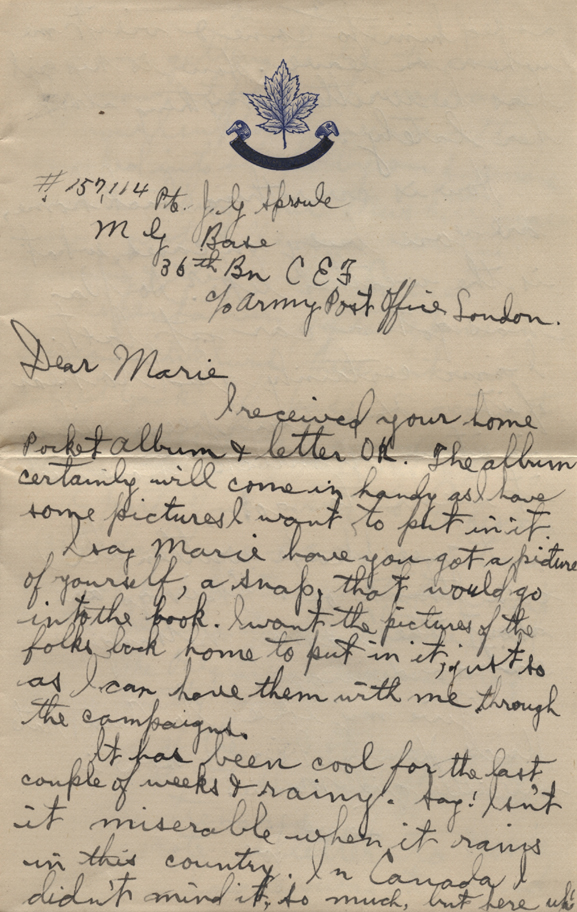 # 157,114 Pte. J G Sproule
M G Base
36th Bn C E F
c/o Army Post Office London.
Dear Marie
I received your home
Pocket album & letter OK. The album
certainly will come in handy as I have
some pictures I want to put in it
I say Marie have you got a picture
of yourself, a snap, that would go
into the book. I want the pictures of the
folks back home to put in it, just so
as I can have them with me through
the campaigns.
It has been cool for the last
couple of weeks & rainy. Say! Isn't
it miserable when it rains
in this country. In Canada I
didn't mind it, so much, but here